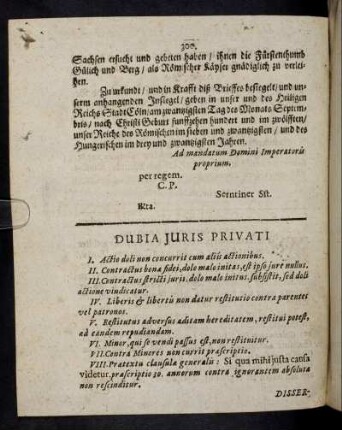 300.
Sachsen ersucht und gebeten haben / ihnen die Fürstenthumb
Gülich und Berg / als Römischer Käyser gnädiglich zu verlei-
hen.
Zu urkundt / und in Krafft diß Brieffes besiegelt / und un-
serm anhangenden Insiegel / geben in unser und des Heiligen
Reichs Stadt Cöln / am zwantzigsten Tag des Monats Septem-
bris / nach Christi Geburt funffzehen hundert und im zwölfften /
unser Reiche des Römischen im sieben und zwantzigsten / und des
Hungerischen im drey und zwantzigsten Jahren.
Ad mandatum Domini Imperatoris
proprium.
per regem.
C. P.
Serntiner Sst.
Rta.
DUBIA JURIS PRIVATI
I. Actio doli non concurrit cum aliis actionibus.
II. Contractus bona fidei, dolo malo initus, est ipso jure nullus.
III. Contractus stricti juris, dolo malo initus, subsistit, sed doli
actione vindicatur.
IV. Liberis & libertis non datur restitutio contra parentes
vel patronos.
V. Restitutus adversus aditam hereditatem, restitui potest,
ad eandem repudiandam.
VI. Minor, qui se vendi passus est, non restituitur.
VII. Contra Minores non currit præscriptio.
VIII. Prætextu clausulæ generalis: Si qua mihi justa causa
videtur, præscriptio 30. annorum contra ignorantem absoluta
non rescinditur.
DISSER-